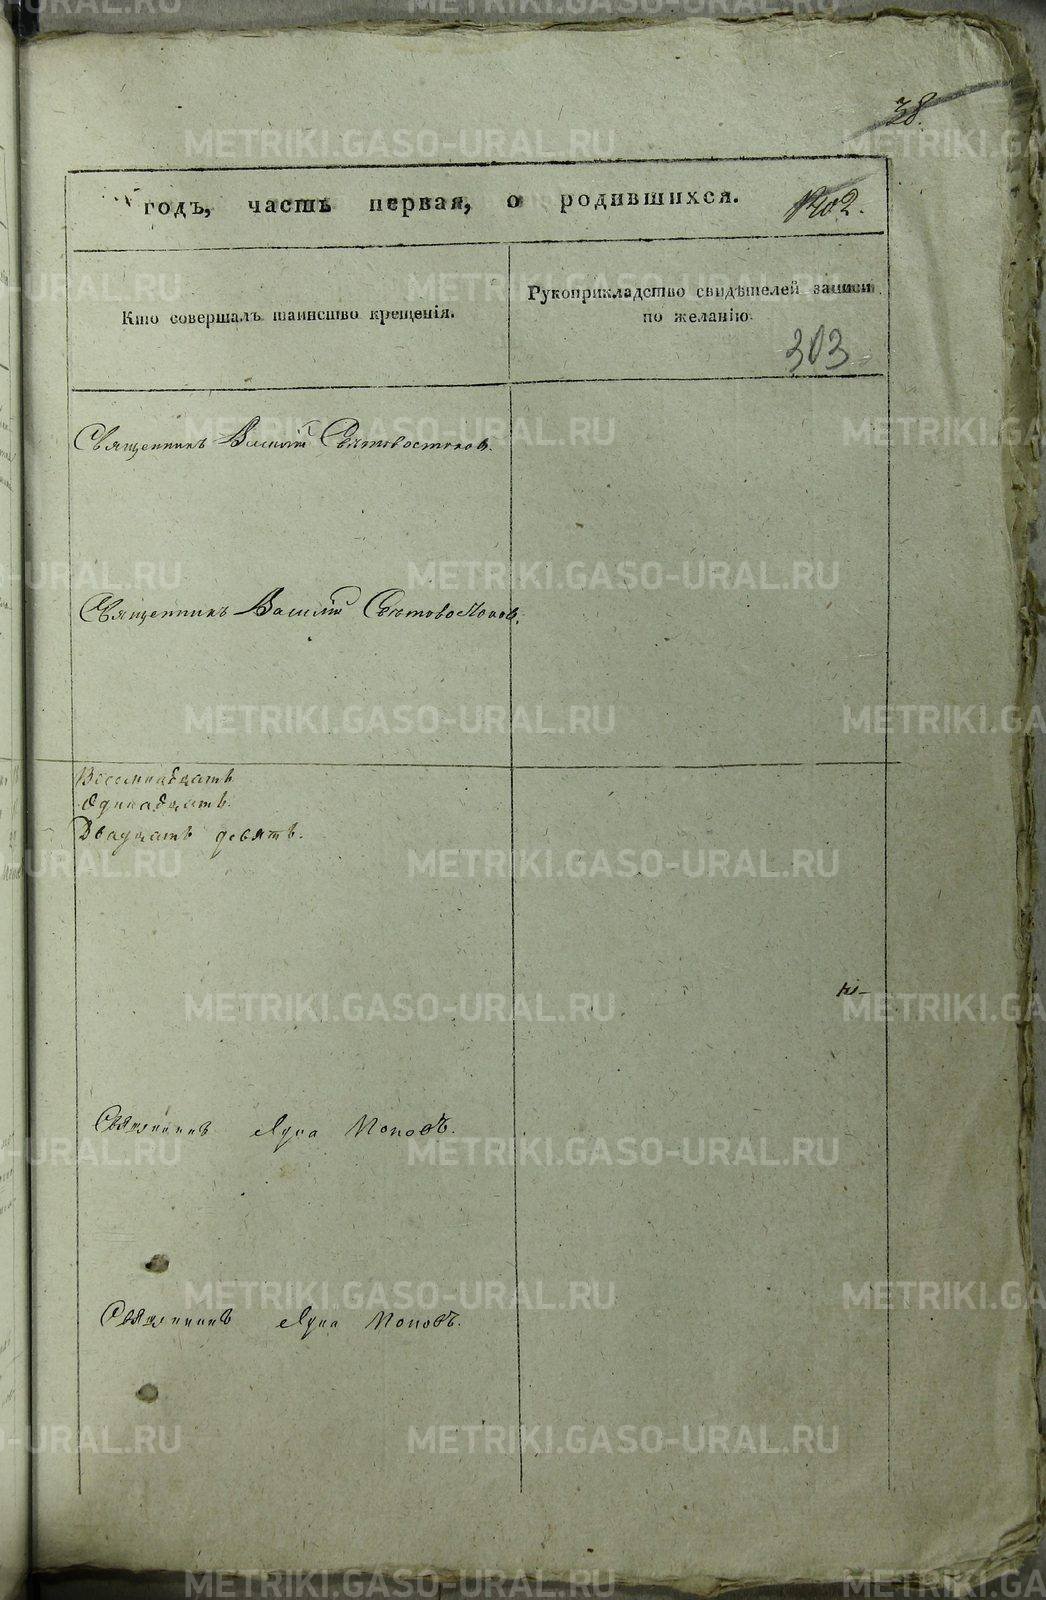 38.
годъ, часть первая, о родившихся.
1402.
Кто совершалъ таинство крещенія.
Рукоприкладство свидѣтелей записи
по желанію.
303
Священникъ Василій Свѣтовостоковъ.
Священникъ Василій Свѣтовостоковъ.
Восемнадцать
Одинадцать.
Двадцать девять.
Священникъ Лука Поповъ.
Священникъ Лука Поповъ.
METRIKI.GASO-URAL.RU